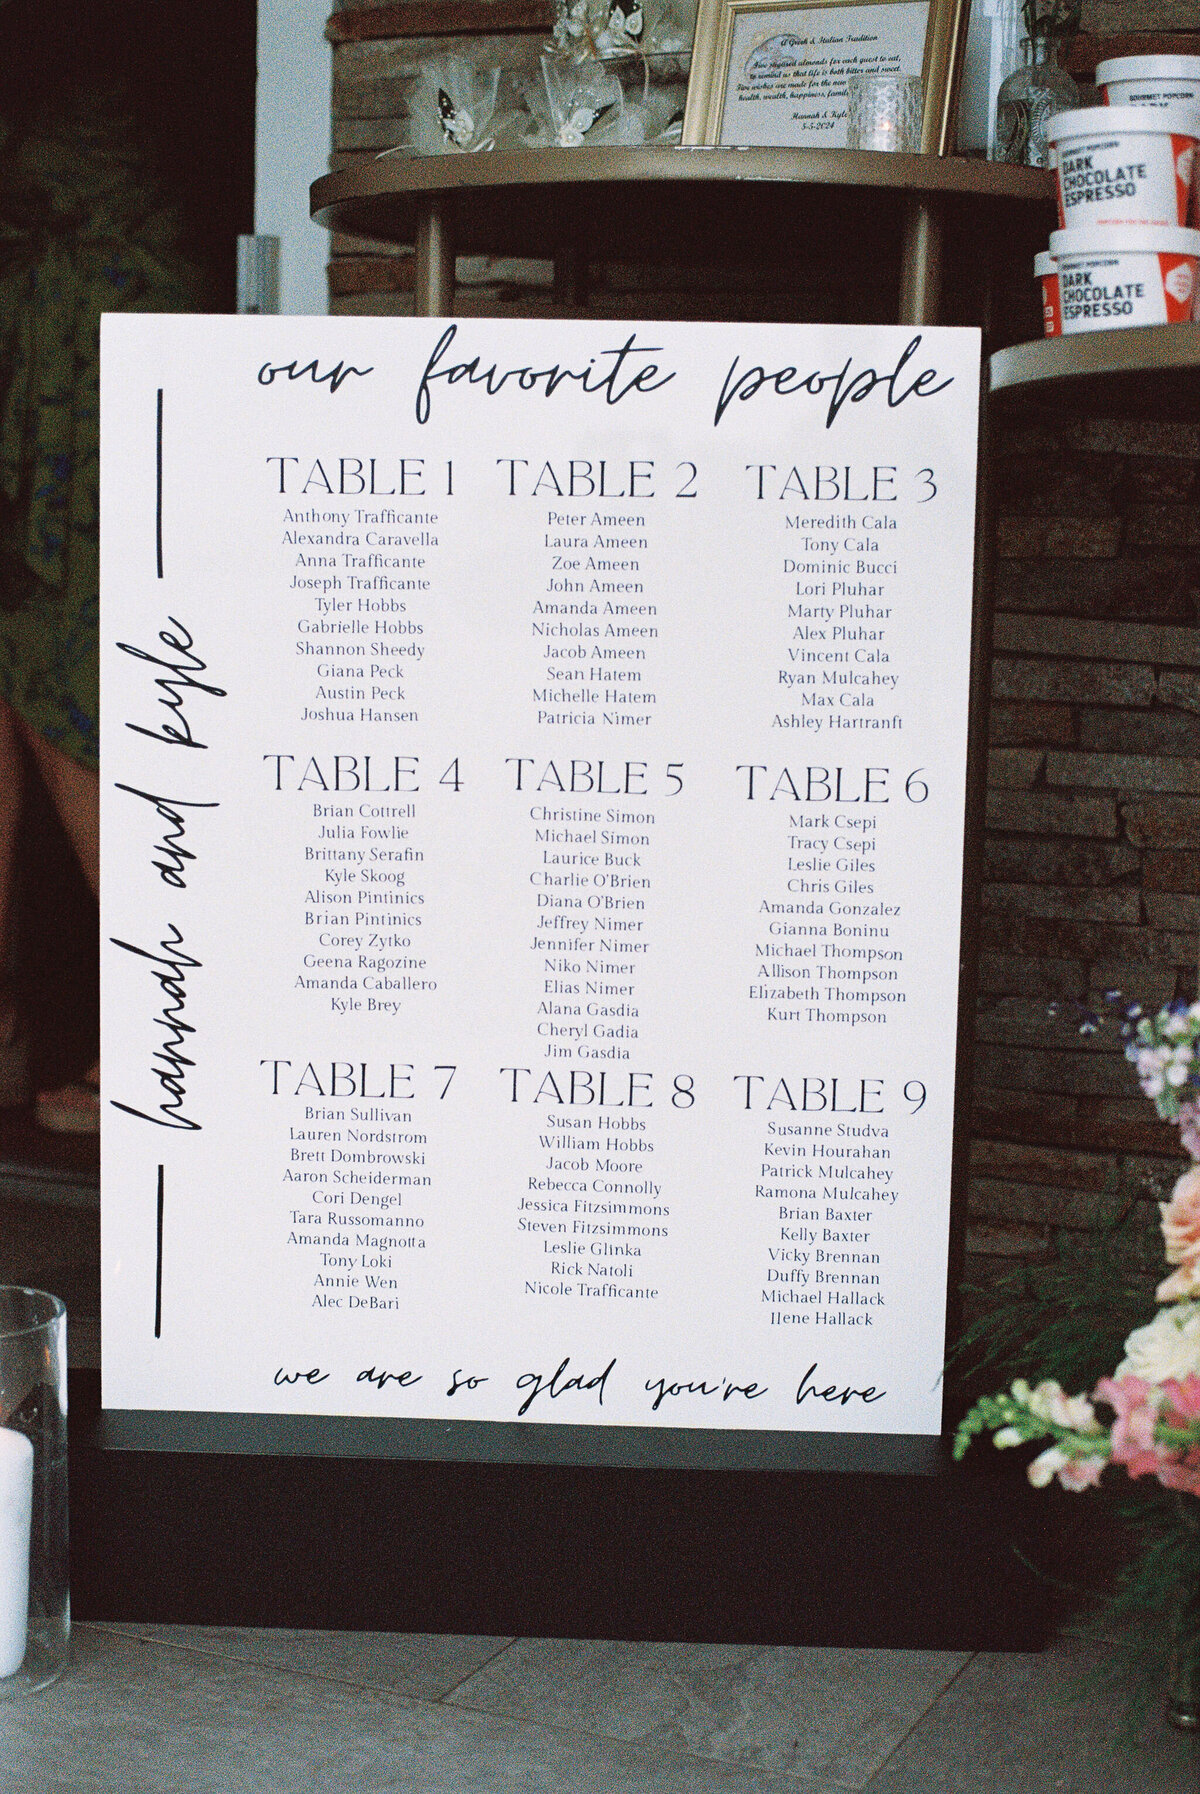 A Greek & Italian Tradition
Five sugared almonds for each guest to eat,
to remind us that life is both bitter and sweet.
Five wishes are made for the new
health, wealth, happiness, famil
Hannah & Kyle
5-5-2024
GOURMET POPCORN
DARK
CHOCOLATE
ESPRESSO
DARK
CHOCOLATE
ESPRESSO
our favorite people
hannah and kyle
TABLE 1
Anthony Trafficante
Alexandra Caravella
Anna Trafficante
Joseph Trafficante
Tyler Hobbs
Gabrielle Hobbs
Shannon Sheedy
Giana Peck
Austin Peck
Joshua Hansen
TABLE 2
Peter Ameen
Laura Ameen
Zoe Ameen
John Ameen
Amanda Ameen
Nicholas Ameen
Jacob Ameen
Sean Hatem
Michelle Hatem
Patricia Nimer
TABLE 3
Meredith Cala
Tony Cala
Dominic Bucci
Lori Pluhar
Marty Pluhar
Alex Pluhar
Vincent Cala
Ryan Mulcahey
Max Cala
Ashley Hartranft
TABLE 4
Brian Cottrell
Julia Fowlie
Brittany Serafin
Kyle Skoog
Alison Pintinics
Brian Pintinics
Corey Zytko
Geena Ragozine
Amanda Caballero
Kyle Brey
TABLE 5
Christine Simon
Michael Simon
Laurice Buck
Charlie O'Brien
Diana O'Brien
Jeffrey Nimer
Jennifer Nimer
Niko Nimer
Elias Nimer
Alana Gasdia
Cheryl Gadia
Jim Gasdia
TABLE 6
Mark Csepi
Tracy Csepi
Leslie Giles
Chris Giles
Amanda Gonzalez
Gianna Boninu
Michael Thompson
Allison Thompson
Elizabeth Thompson
Kurt Thompson
TABLE 7
Brian Sullivan
Lauren Nordstrom
Brett Dombrowski
Aaron Scheiderman
Cori Dengel
Tara Russomanno
Amanda Magnotta
Tony Loki
Annie Wen
Alec DeBari
TABLE 8
Susan Hobbs
William Hobbs
Jacob Moore
Rebecca Connolly
Jessica Fitzsimmons
Steven Fitzsimmons
Leslie Glinka
Rick Natoli
Nicole Trafficante
TABLE 9
Susanne Studva
Kevin Hourahan
Patrick Mulcahey
Ramona Mulcahey
Brian Baxter
Kelly Baxter
Vicky Brennan
Duffy Brennan
Michael Hallack
Ilene Hallack
we are so glad you're here